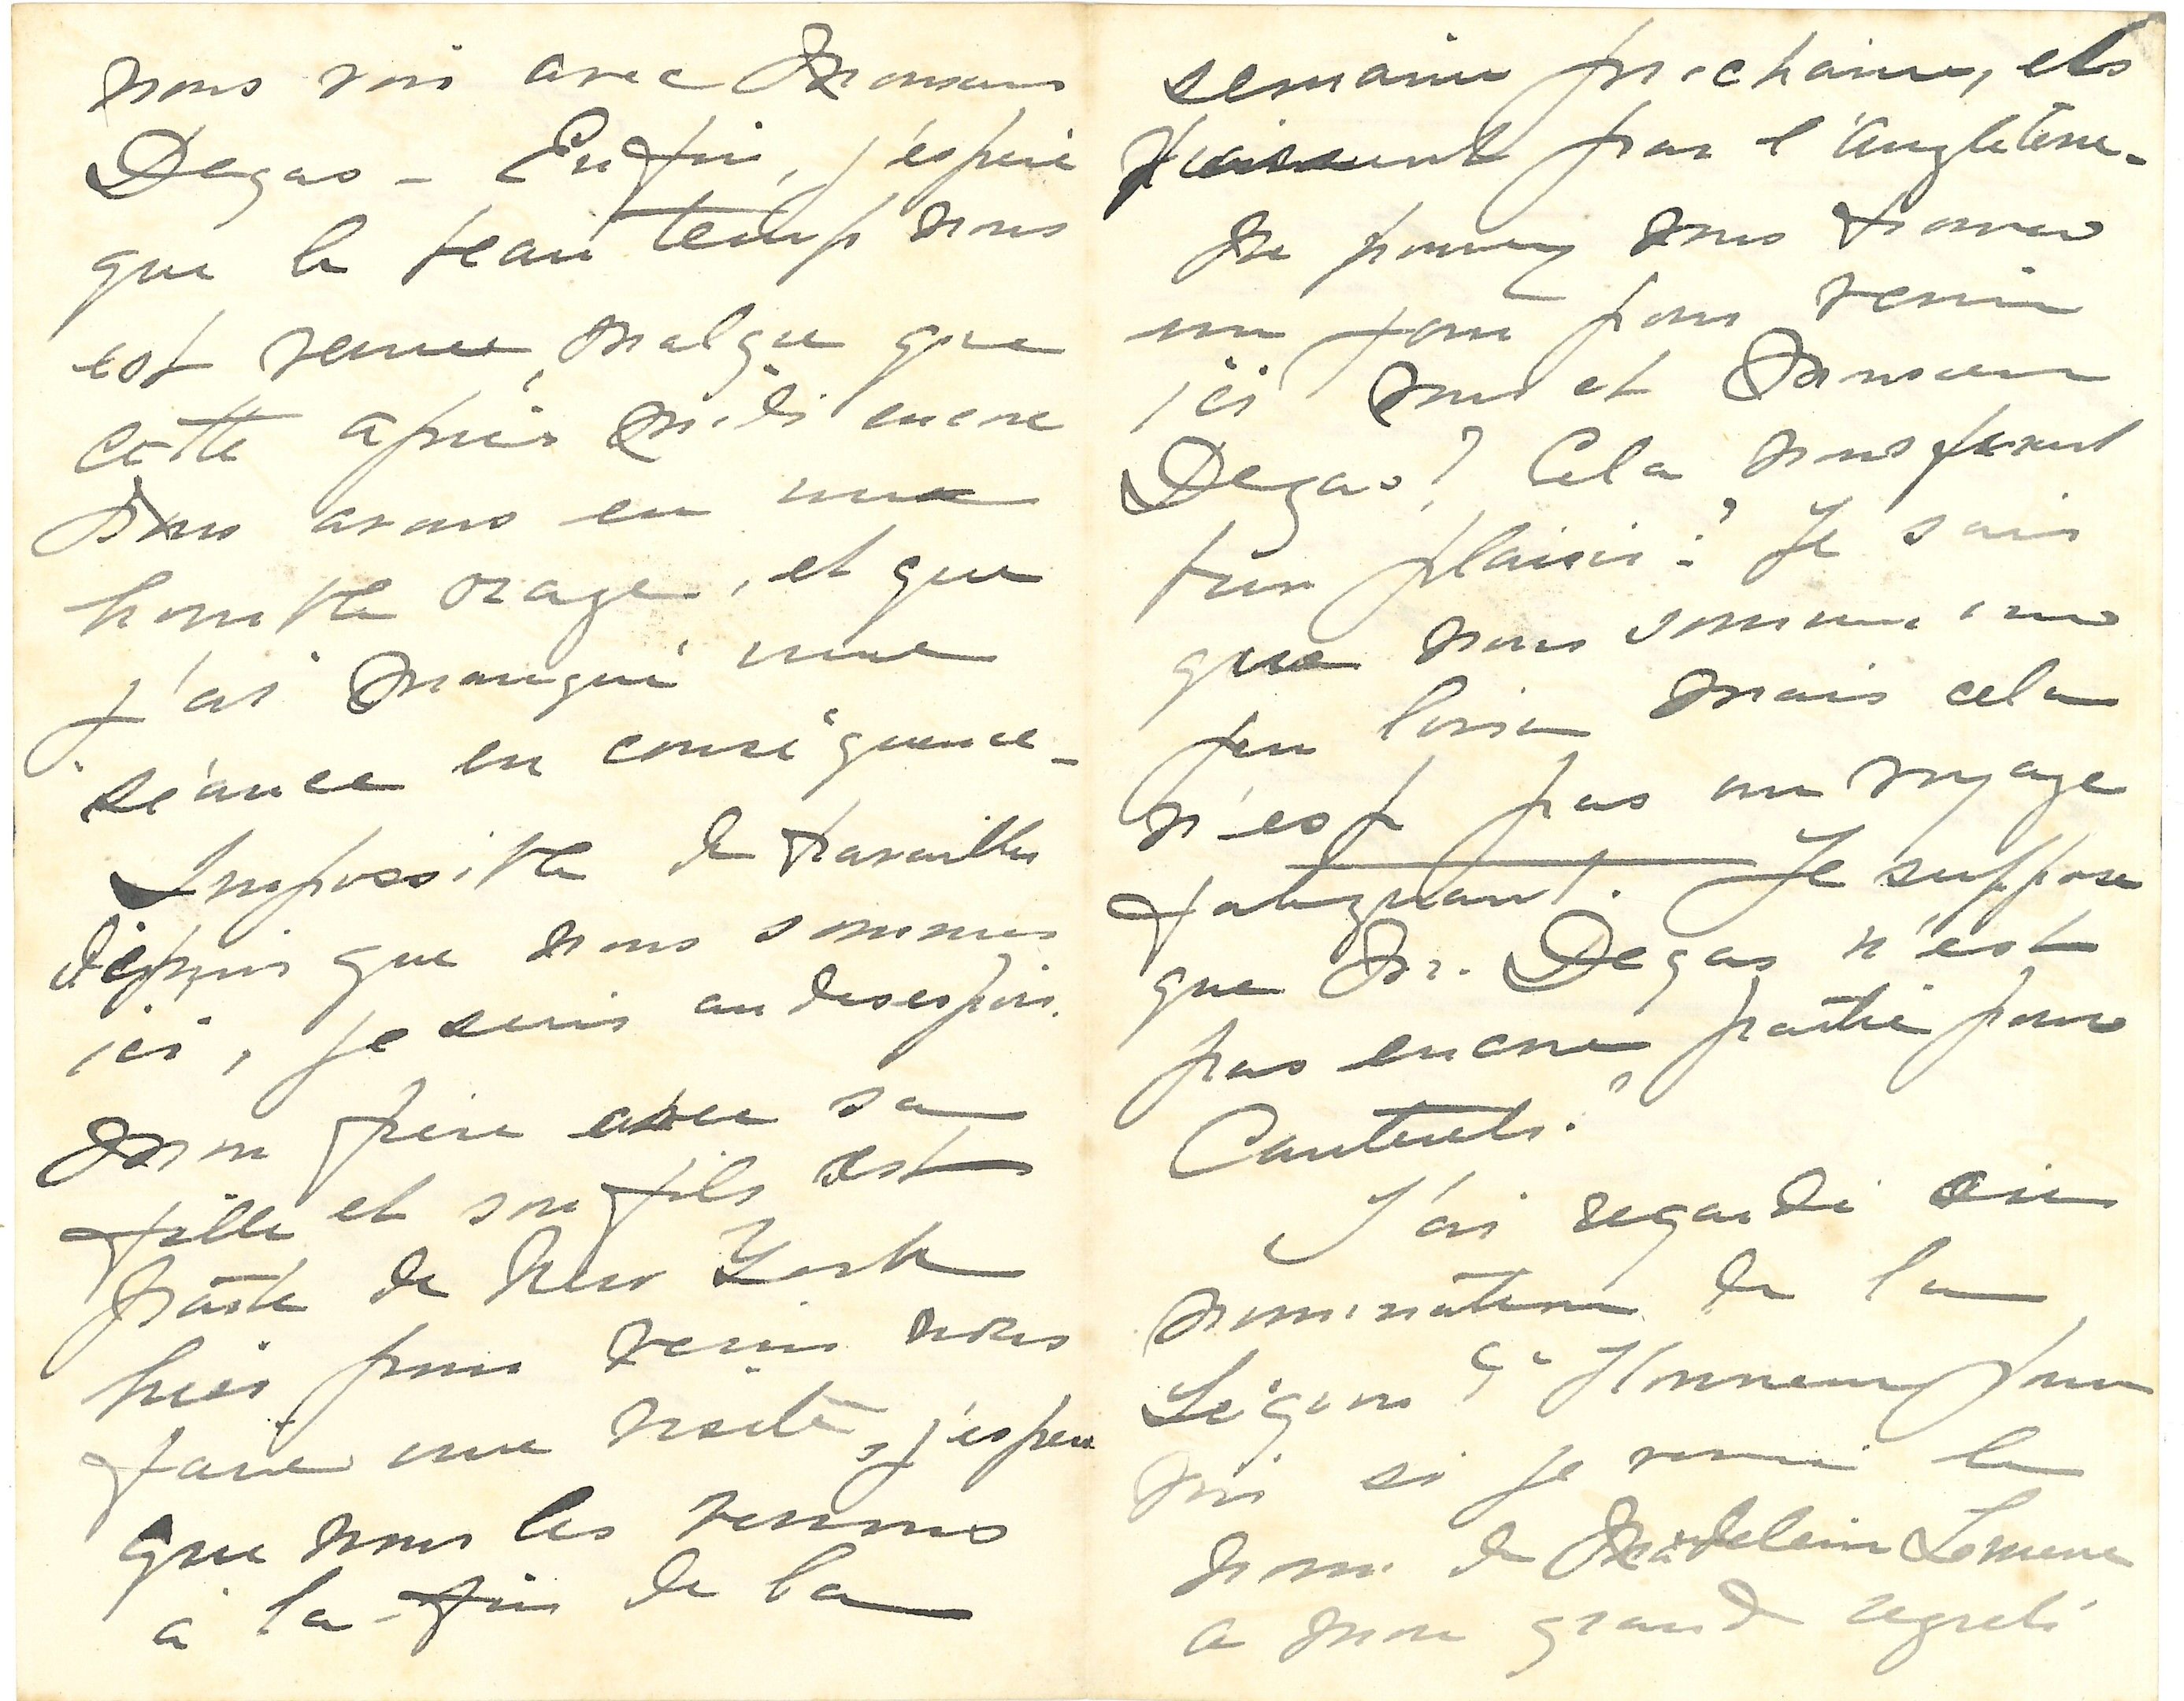 nous voir avec Monsieur
Degas – Enfin, j'espère
que le beau temps nous
est venue, malgré que
cette après midi encore
nous avons eu une
horrible orage, et que
j'ai manqué une
séance en conséquence –
Impossible de travailler
depuis que nous sommes
ici, je suis au desespoir.
Mon frère avec sa
fille et son fils est
parti de New York
hier pour venir nous
faire une visite, j'espère
que nous les verrons
à la fin de la
semaine prochaine, ils
passent par l'Angleterre.
Ne pouvez vous trouver
un jour pour venir
ici vous et Monsieur
Degas? Cela nous ferait
bien plaisir! Je sais
que nous sommes un
peu loin mais cela
n'est pas un voyage
fatiguant. Je suppose
que Mr. Degas n'est
pas encore partie pour
Cauterets?
J'ai regardé
nominations de la
Légion d'Honneur pour
voir si je verrai le
nom de Madeleine Lemaire
a mon grand regret